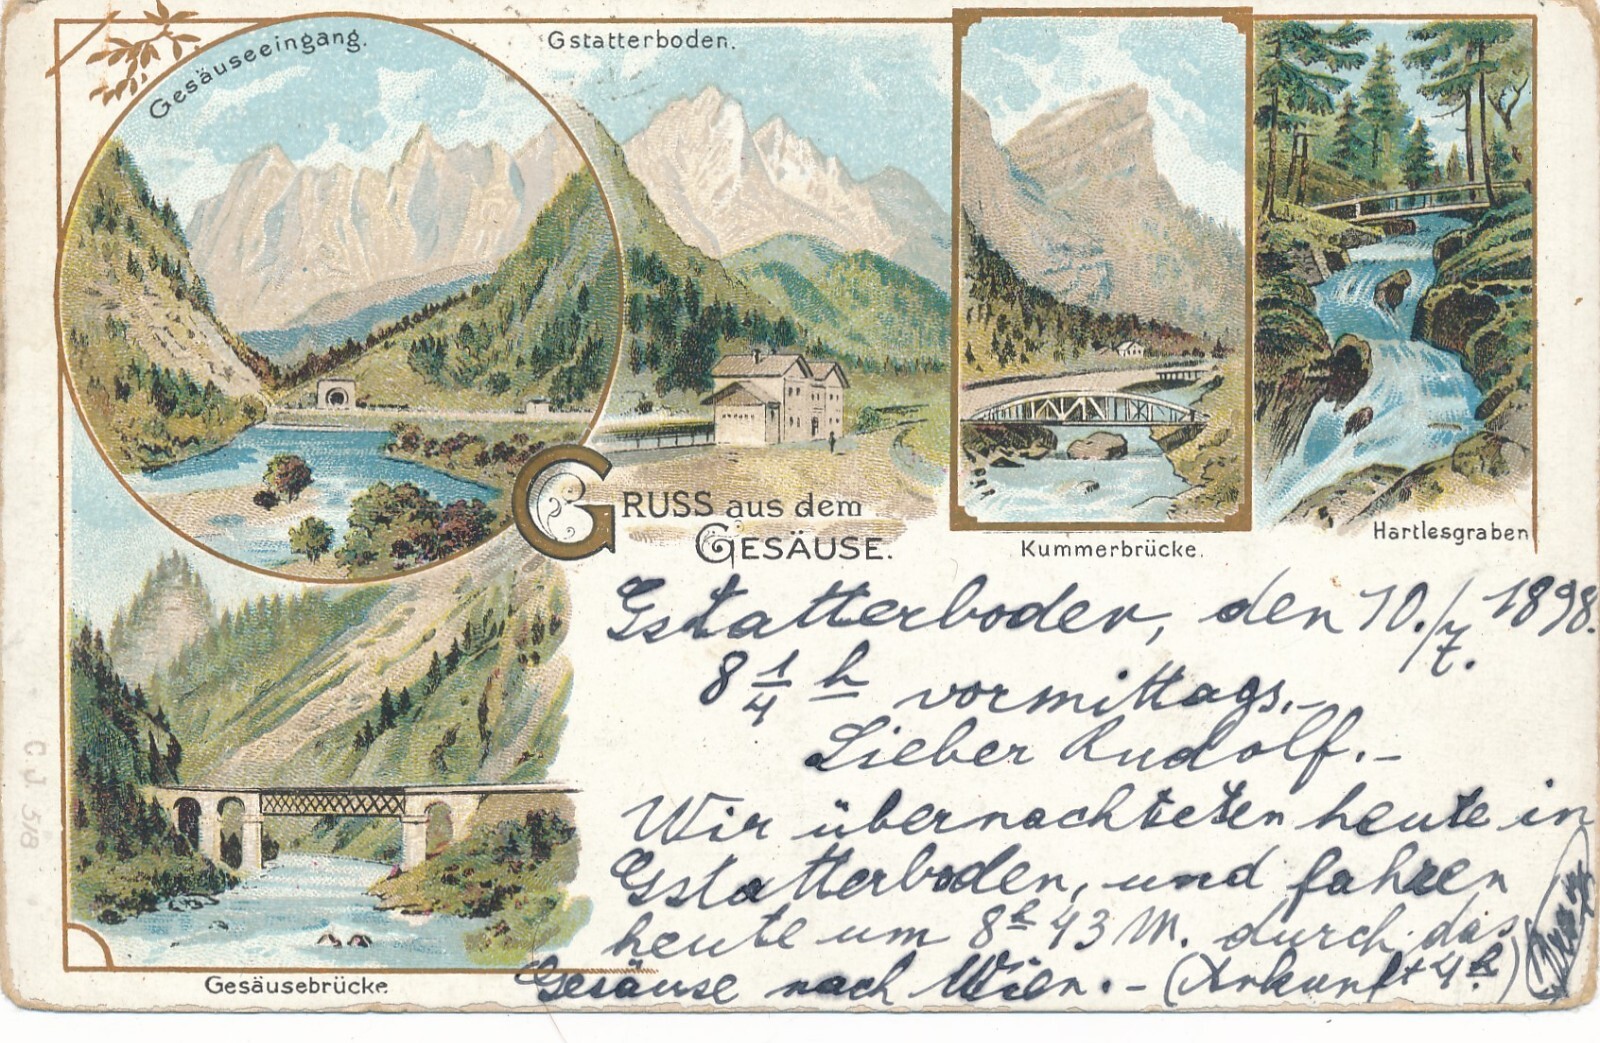 Gesäuseeingang.
Gstatterboden.
GRUSS aus dem
GESÄUSE.
Kummerbrücke.
Hartlesgraben
Gesäusebrücke.
C. J. 518
Gstatterboden, den 10./7. 1898.
8 1/4 h vormittags.-
Lieber Rudolf.-
Wir übernachteten heute in
Gstatterboden, und fahren
heute um 8h 43 M. durch das
Gesäuse nach Wien.- (Ankunft 4h)